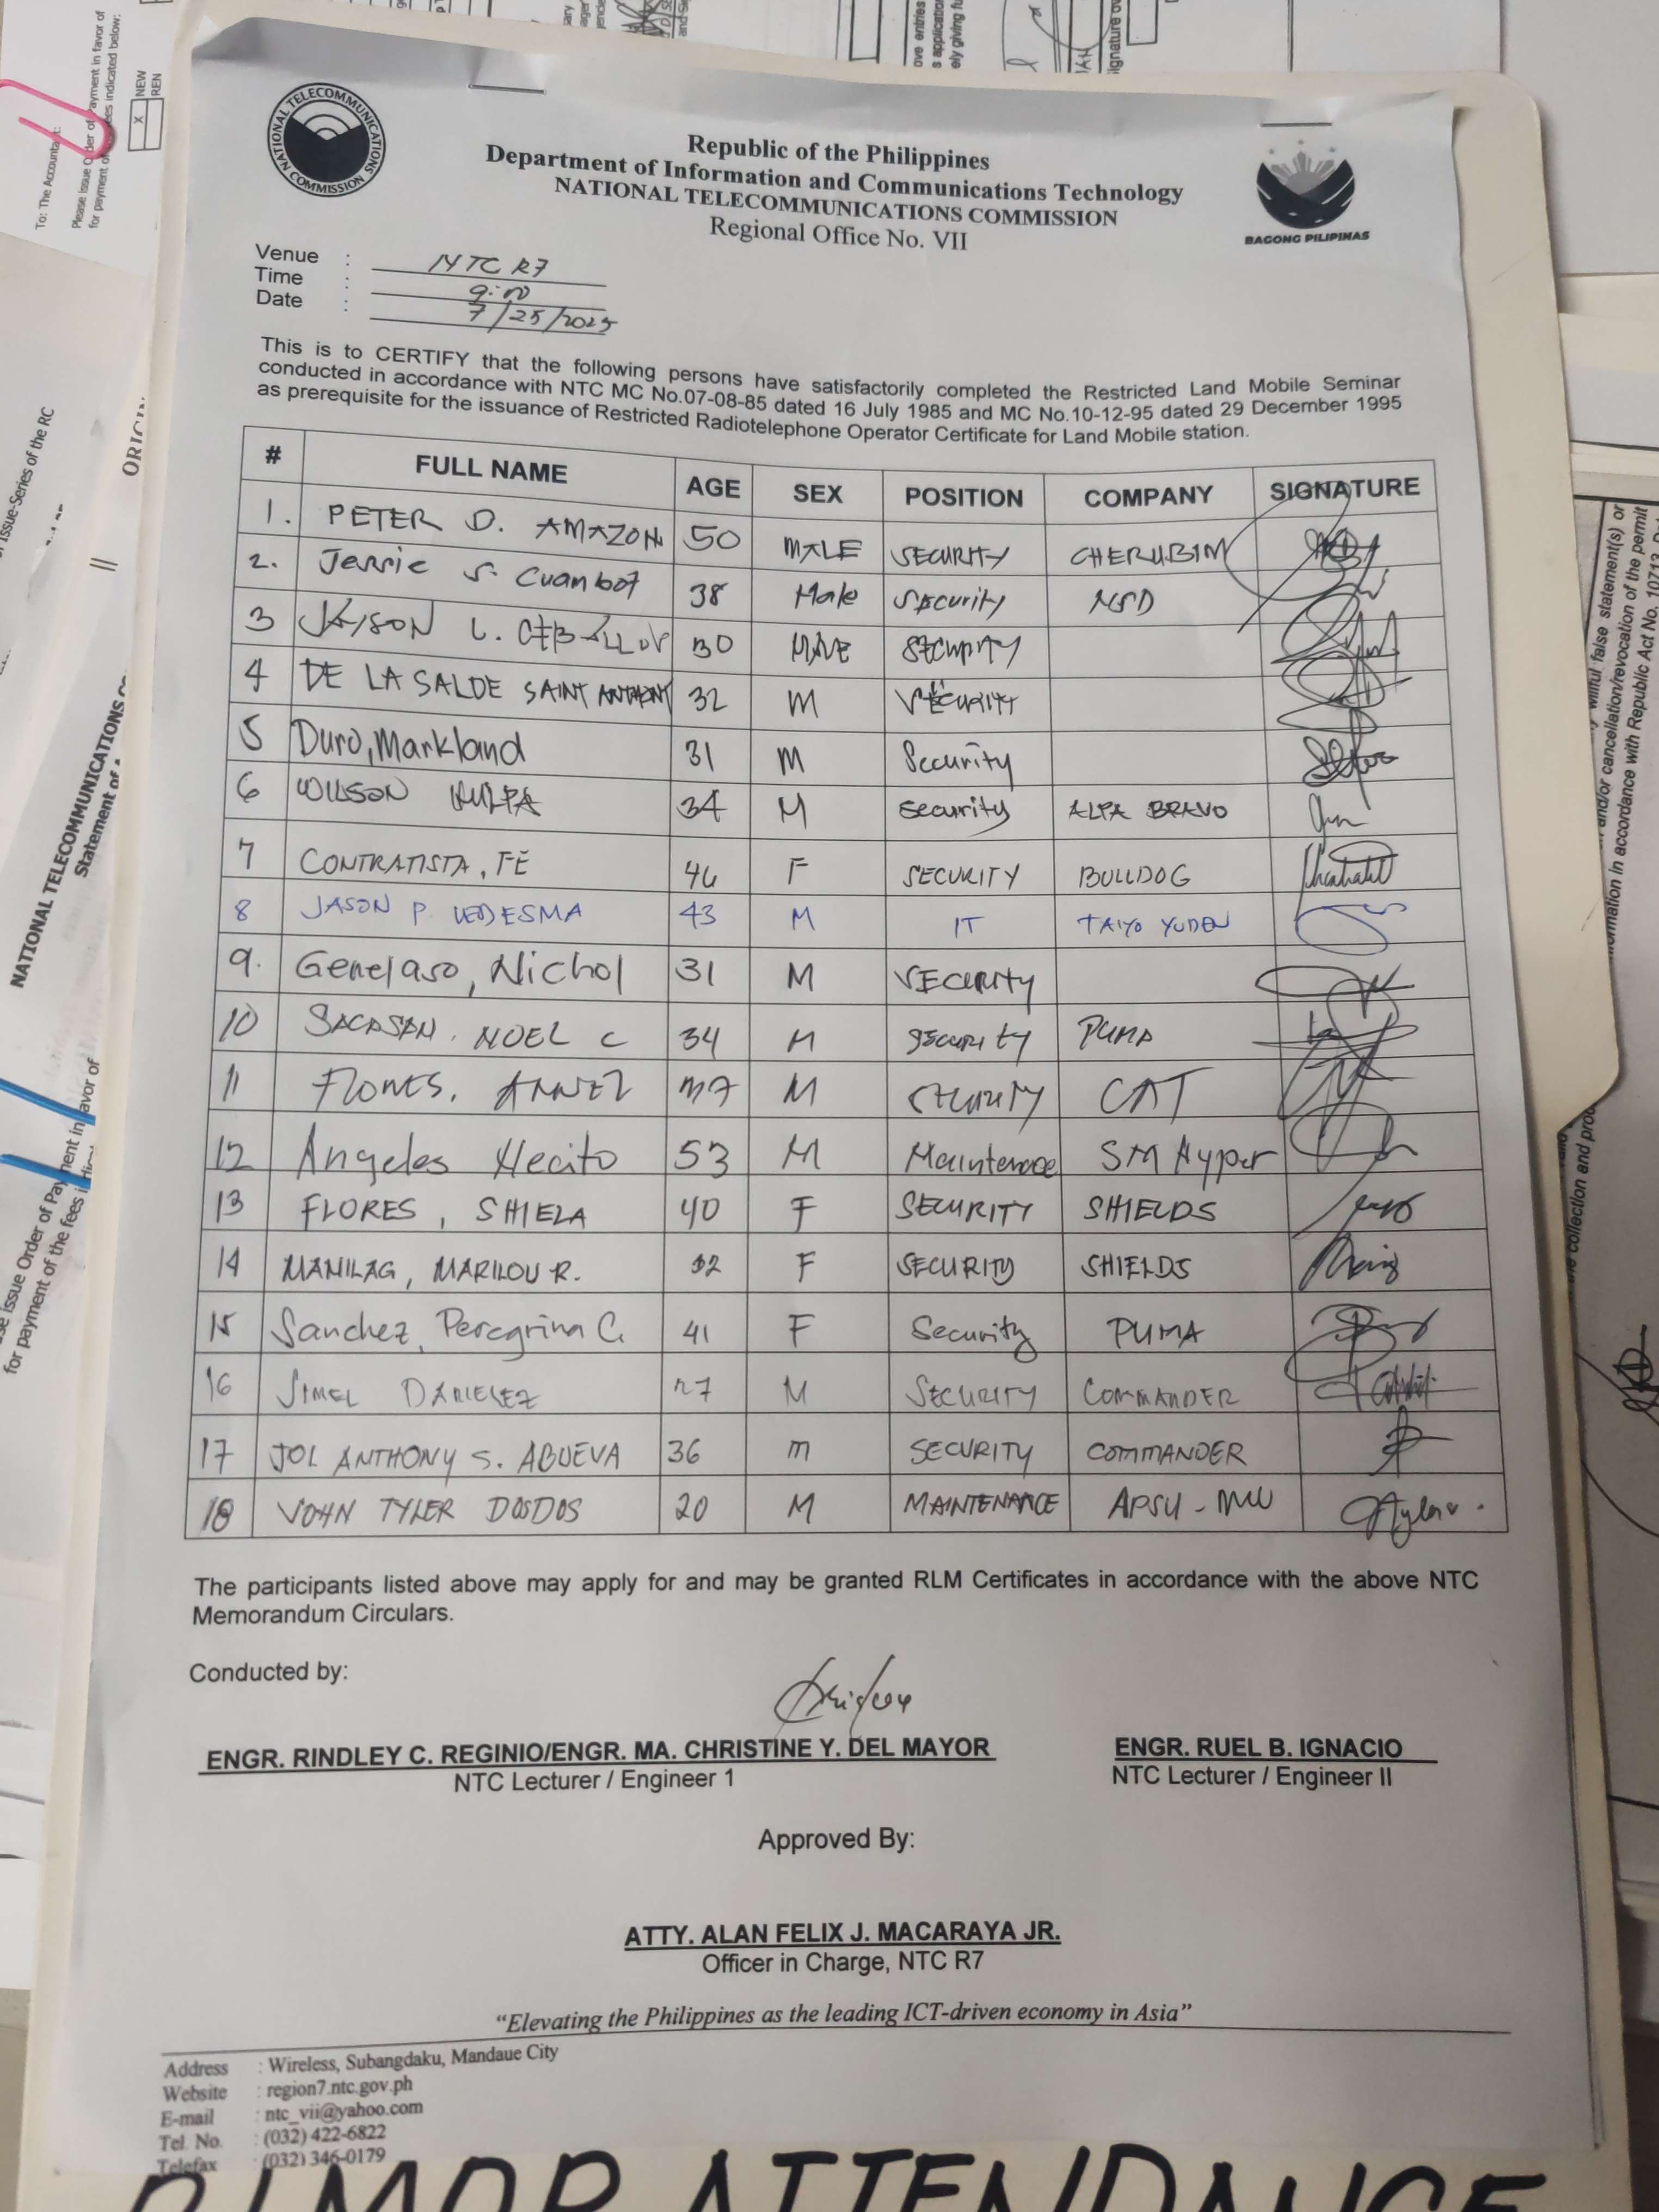 NATIONAL TELECOMMUNICATIONS COMMISSION
BAGONG PILIPINAS
Republic of the Philippines
Department of Information and Communications Technology
NATIONAL TELECOMMUNICATIONS COMMISSION
Regional Office No. VII
Venue : NTC R7
Time : 9:00
Date : 7/25/2025
This is to CERTIFY that the following persons have satisfactorily completed the Restricted Land Mobile Seminar
conducted in accordance with NTC MC No.07-08-85 dated 16 July 1985 and MC No.10-12-95 dated 29 December 1995
as prerequisite for the issuance of Restricted Radiotelephone Operator Certificate for Land Mobile station.
# FULL NAME AGE SEX POSITION COMPANY SIGNATURE
1. PETER D. AMAZON 50 MALE SECURITY CHERUBIM
2. Jerrie S. Cuambot 38 Male Security NSD
3 JAYSON L. 30 MALE SECURITY
4 DE LA SALDE SAINT ANTHONY 32 M SECURITY
5 Duro, Markland 31 M Security
6 WILSON 34 M Security ALPA BRAVO
7 CONTRATISTA, FE 46 F SECURITY BULLDOG
8 JASON P. LEDESMA 43 M IT TAIYO YUDEN
9. Genelaso, Nichol 31 M SECURITY
10 SACASAN, NOEL C 34 M SECURITY PUMA
11 FLORES, 37 M SECURITY CAT
12 Angeles Hecito 53 M Maintenace SM Hyper
13 FLORES, SHIELA 40 F SECURITY SHIELDS
14 MANILAG, MARILOU R. 32 F SECURITY SHIELDS
15 Sanchez, Peregrina C. 41 F Security PUMA
16 JIMEL DANIELEZ 27 M SECURITY COMMANDER
17 JOL ANTHONY S. ABUEVA 36 M SECURITY COMMANDER
18 JOHN TYLER DOSDOS 20 M MAINTENANCE
The participants listed above may apply for and may be granted RLM Certificates in accordance with the above NTC
Memorandum Circulars.
Conducted by:
ENGR. RINDLEY C. REGINIO/ENGR. MA. CHRISTINE Y. DEL MAYOR
NTC Lecturer / Engineer 1
ENGR. RUEL B. IGNACIO
NTC Lecturer / Engineer II
Approved By:
ATTY. ALAN FELIX J. MACARAYA JR.
Officer in Charge, NTC R7
“Elevating the Philippines as the leading ICT-driven economy in Asia”
Address : Wireless, Subangdaku, Mandaue City
Website : region7.ntc.gov.ph
E-mail : ntc_vii@yahoo.com
Tel. No. : (032) 422-6822
Telefax : (032) 346-0179
ATTENDANCE
To: The Accountant:
X NEW
REN
NATIONAL TELECOMMUNICATIONS
Statement of